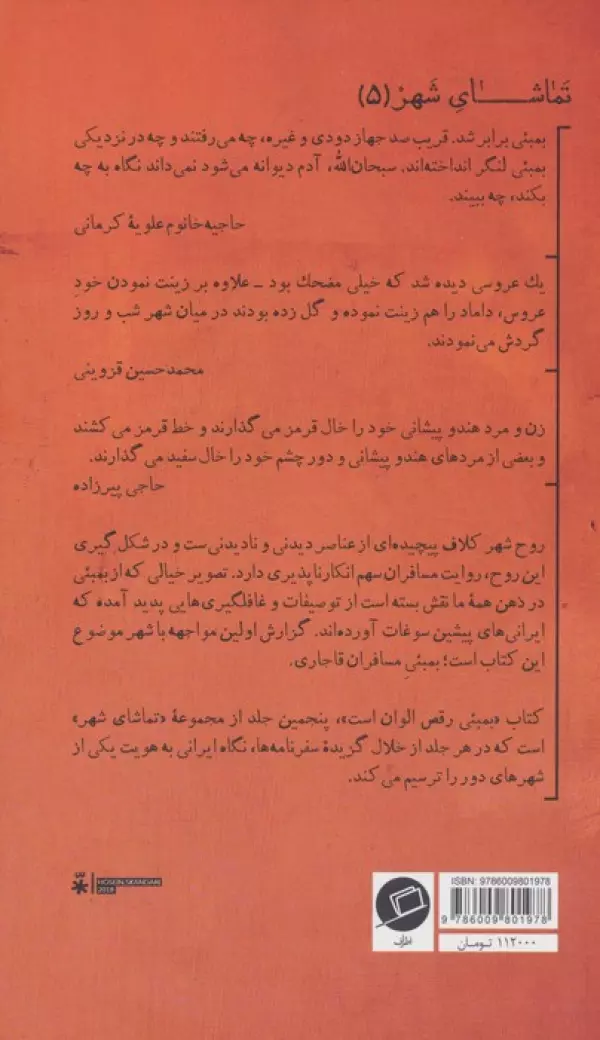 تماشای شهر (۵)
بمبئی برابر شد. قریب صد جهاز دودی و غیره، چه می‌رفتند و چه در نزدیکی
بمبئی لنگر انداخته‌اند. سبحان‌الله، آدم دیوانه می‌شود نمی‌داند نگاه به چه
بکند، چه ببیند.
حاجیه خانوم علویۀ کرمانی
یك عروسی دیده شد که خیلی مضحك بود ــ علاوه بر زینت نمودن خودِ
عروس، داماد را هم زینت نموده و گل زده بودند در میان شهر شب و روز
گردش می‌نمودند.
محمدحسین قزوینی
زن و مرد هندو پیشانی خود را خال قرمز می‌گذارند و خط قرمز می‌کشند
و بعضی از مردهای هندو پیشانی و دور چشم خود را خال سفید می‌گذارند.
حاجی پیرزاده
روح شهر کلاف پیچیده‌ای از عناصر دیدنی و نادیدنی‌ست و در شکل‌گیری
این روح، روایت مسافران سهم انکارناپذیری دارد. تصویر خیالی که از بمبئی
در ذهن همۀ ما نقش بسته است از توصیفات و غافلگیری‌هایی پدید آمده که
ایرانی‌های پیشین سوغات آورده‌اند. گزارش اولین مواجهه با شهر موضوع
این کتاب است؛ بمبئیِ مسافران قاجاری.
کتاب «بمبئی رقص الوان است»، پنجمین جلد از مجموعۀ «تماشای شهر»
است که در هر جلد از خلال گزیدۀ سفرنامه‌ها، نگاه ایرانی به هویت یکی از
شهرهای دور را ترسیم می‌کند.
HOSEIN SKANDARI
2018
اطراف
ISBN: 9786009801978
9 786009 801978
۱۱۲۰۰۰ تومـان